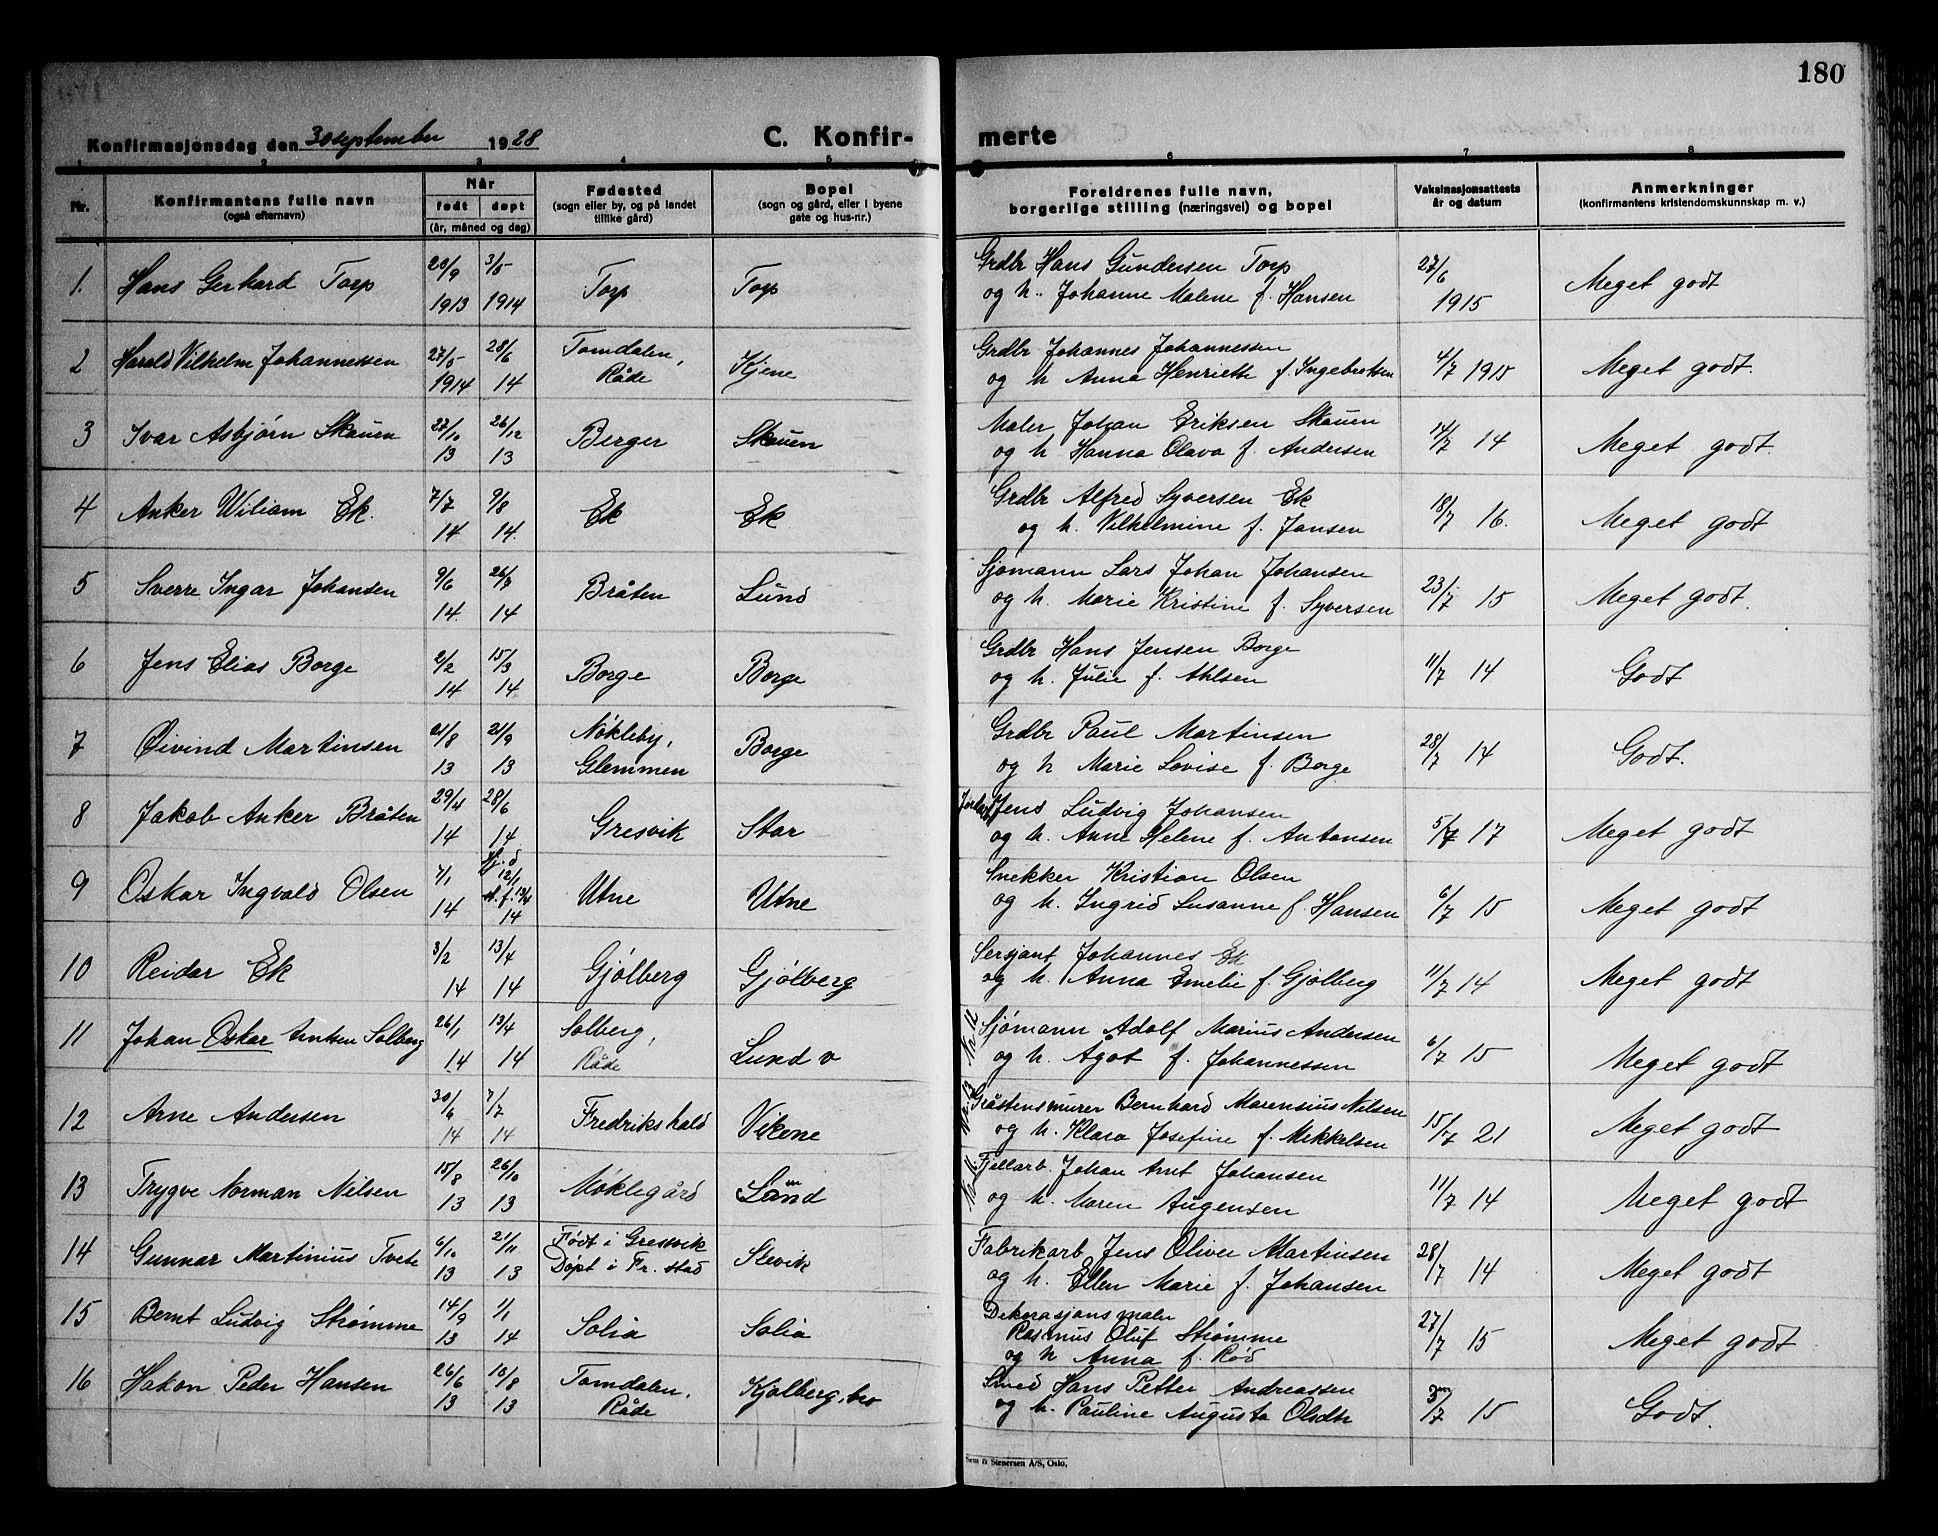 180
Konfirmasjonsdag den 30 september 1928
C. Konfir-
merte
1 2 3 4 5 6 7 8
Nr.
Konfirmantens fulle navn
(også efternavn)
Når
født døpt
(år, måned og dag)
Fødested
(sogn eller by, og på landet
tillike gård)
Bopel
(sogn og gård, eller i byene
gate og hus-nr.)
Foreldrenes fulle navn,
borgerlige stilling (næringsvei) og bopel
Vaksinasjonsattests
år og datum
Anmerkninger
(konfirmantens kristendomskunnskap m. v.)
1. Hans Gerhard Torp 20/9 1913 3/5 1914 Torp Torp
Grdbr Hans Gundersen Torp
og h. Johanne Malene f. Hansen 27/6 1915 Meget godt
2 Harald Vilhelm Johannessen 27/5 1914 28/6 14 Tomdalen, Råde Kjene
Grdbr Johannes Johannessen
og h Anna Henriette f. Ingebretsen 4/7 1915 Meget godt.
3 Ivar Asbjørn Skauen 27/10 13 26/12 13 Berger Skauen
Maler Johan Eriksen Skauen
og h Hanna Olava f. Andersen 14/7 14 Meget godt.
4 Anker Wiliam Ek. 7/7 14 9/8 14 Ek Ek
Grdbr Alfred Syversen Ek
og h. Vilhelmine f. Jansen 18/7 16. Meget godt
5 Sverre Ingar Johansen 9/6 14. 26/7 14 Bråten Lund
Sjømann Lars Johan Johansen
og h. Marie Kristine f. Syversen 23/7 15 Meget godt.
6 Jens Elias Borge 2/2 14 15/3 14 Borge Borge
Grdbr Hans Jensen Borge
og h. Julie f. Ahlsen 11/7 14 Godt
7 Øivind Martinsen 21/8 13 21/9 13 Nökleby, Glemmen Borge
Grdbr Paul Martinsen
og h Marie Lovise f. Borge 28/7 14 Godt.
8 Jakob Anker Bråten 29/4 14 28/6 14 Gresvik Stor
Jens Ludvig Johansen
og h. Anne Helene f. Antonsen 5/7 17 Meget godt
9 Oskar Ingvald Olsen 7/1 14 Hj. d 12/1 st. f. 13/4 14 Utne Utne
Snekker Kristian Olsen
og h. Ingrid Susanne f. Hansen 6/7 15 Meget godt
10 Reidar Ek 3/2 14 13/4 14 Gjölberg Gjölberg
Sersjant Johannes Ek
og h. Anna Emelie f. Gjölberg 11/7 14 Meget godt
11 Johan Oskar Antsen Solberg 26/1 14 13/4 14 Solberg, Råde Lund v
Nr 12 Sjömann Adolf Marius Andersen
og h. Ågot f. Johannessen 6/7 15 Meget godt
12 Arne Andersen 30/6 14 7/7 14 Fredrikshald Vikene
Nr. 13 Gråstensmurer Bernhard Marensius Nilsen
og h. Klara Josefine f. Mekkelsen 15/7 21 Meget godt
13 Trygve Norman Nilsen 15/8 13 26/10 13 Möklegård Lund
Nr. 11. Fjellarb. Johan Arnt Johansen
og h. Maren Augensen 11/7 14 Meget godt
14 Gunnar Martinius Tvete 6/10 13 21/11 13 Født i Gressvik Døpt i Fr. stad Slevik
Fabrikarb Jens Oliver Martinsen
og h. Ellen Marie f. Johansen 28/7 14 Meget godt
15 Bernt Ludvig Strømme 14/9 13 1/1 14 Solia Solia
Dekorasjonsmaler
Rasmus Oluf Strømme
og h Anna f. Rød 27/7 15 Meget godt
16 Hakon Peder Hansen 26/6 13 10/8 13 Tomdalen, Råde Kjølberg, bro
Smed Hans Petter Andreassen
og h. Pauline Augusta Olsdtr 15 Godt.
Sem & Stenersen A/S, Oslo.